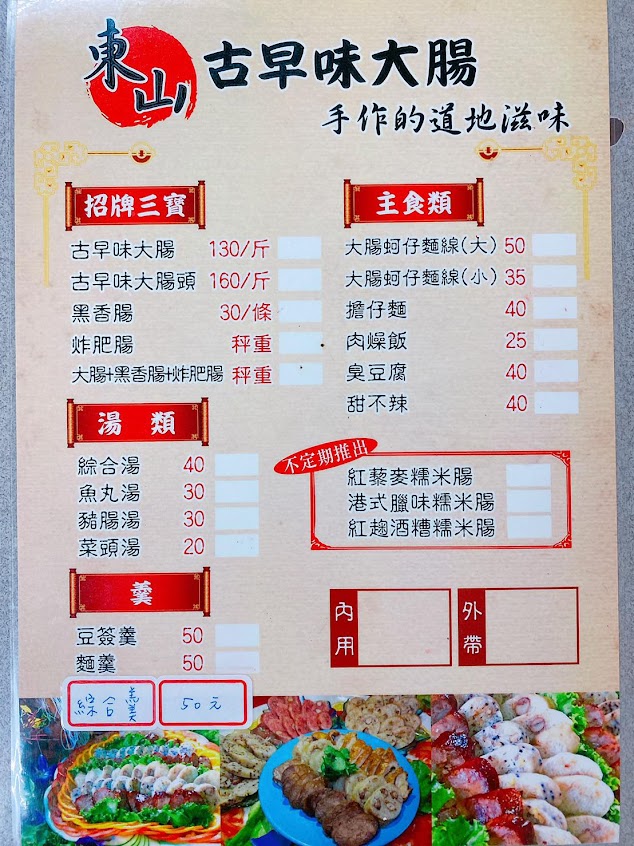 東山 古早味大腸
手作的道地滋味
招牌三寶
古早味大腸 130/斤
古早味大腸頭 160/斤
黑香腸 30/條
炸肥腸 秤重
大腸+黑香腸+炸肥腸 秤重
湯類
綜合湯 40
魚丸湯 30
豬腸湯 30
菜頭湯 20
羹
豆簽羹 50
麵羹 50
綜合羹 50元
主食類
大腸蚵仔麵線(大) 50
大腸蚵仔麵線(小) 35
擔仔麵 40
肉燥飯 25
臭豆腐 40
甜不辣 40
不定期推出
紅藜麥糯米腸
港式臘味糯米腸
紅趜酒糟糯米腸
內用
外帶